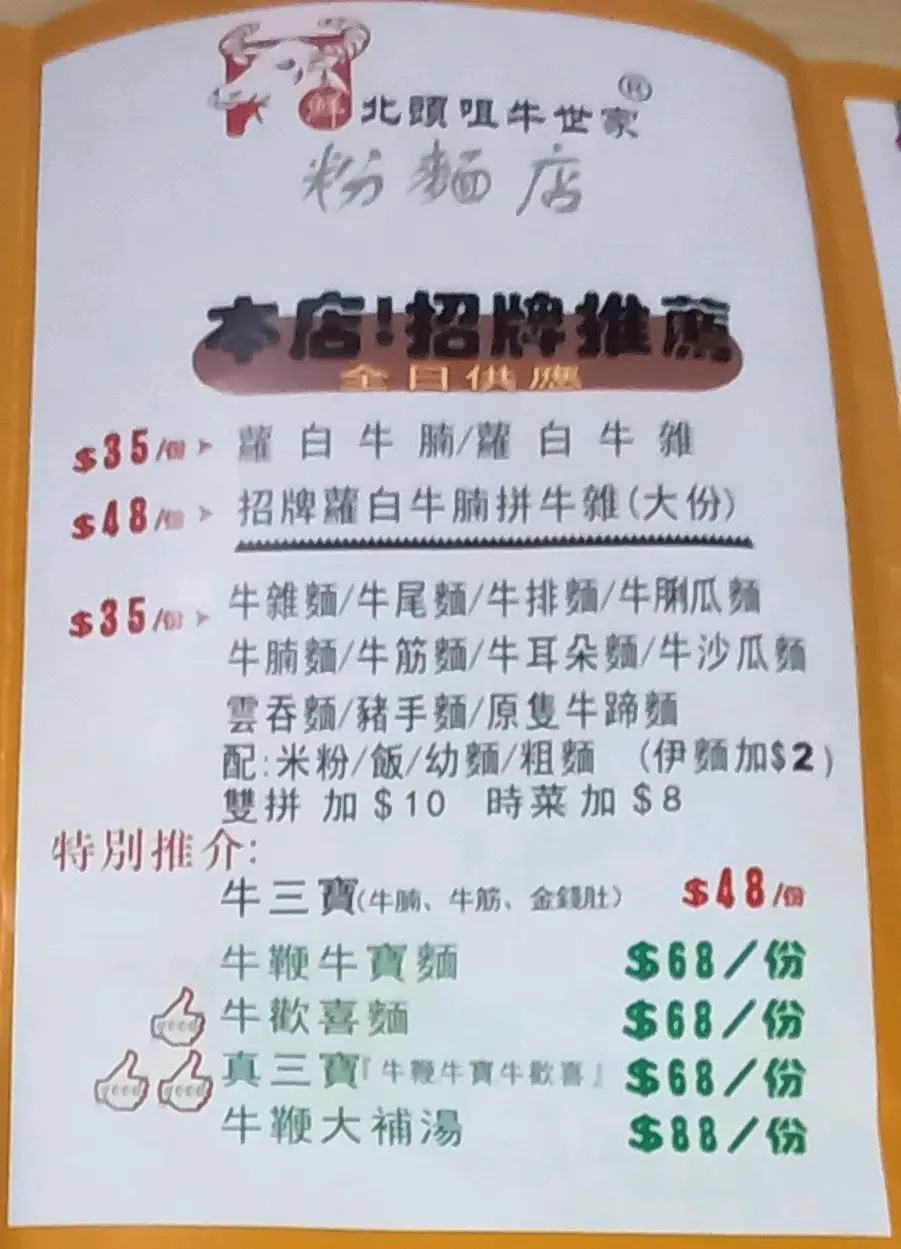 鮮 北頭咀牛世家®
粉麵店
本店!招牌推薦
全日供應
$35/份 蘿白牛腩/蘿白牛雜
$48/份 招牌蘿白牛腩拼牛雜(大份)
$35/份 牛雜麵/牛尾麵/牛排麵/牛脷瓜麵
牛腩麵/牛筋麵/牛耳朵麵/牛沙瓜麵
雲吞麵/豬手麵/原隻牛蹄麵
配:米粉/飯/幼麵/粗麵 (伊麵加$2)
雙拼加$10 時菜加$8
特別推介:
牛三寶(牛腩、牛筋、金錢肚) $48/份
牛鞭牛寶麵 $68/份
good 牛歡喜麵 $68/份
good good 真三寶『牛鞭牛寶牛歡喜』 $68/份
牛鞭大補湯 $88/份